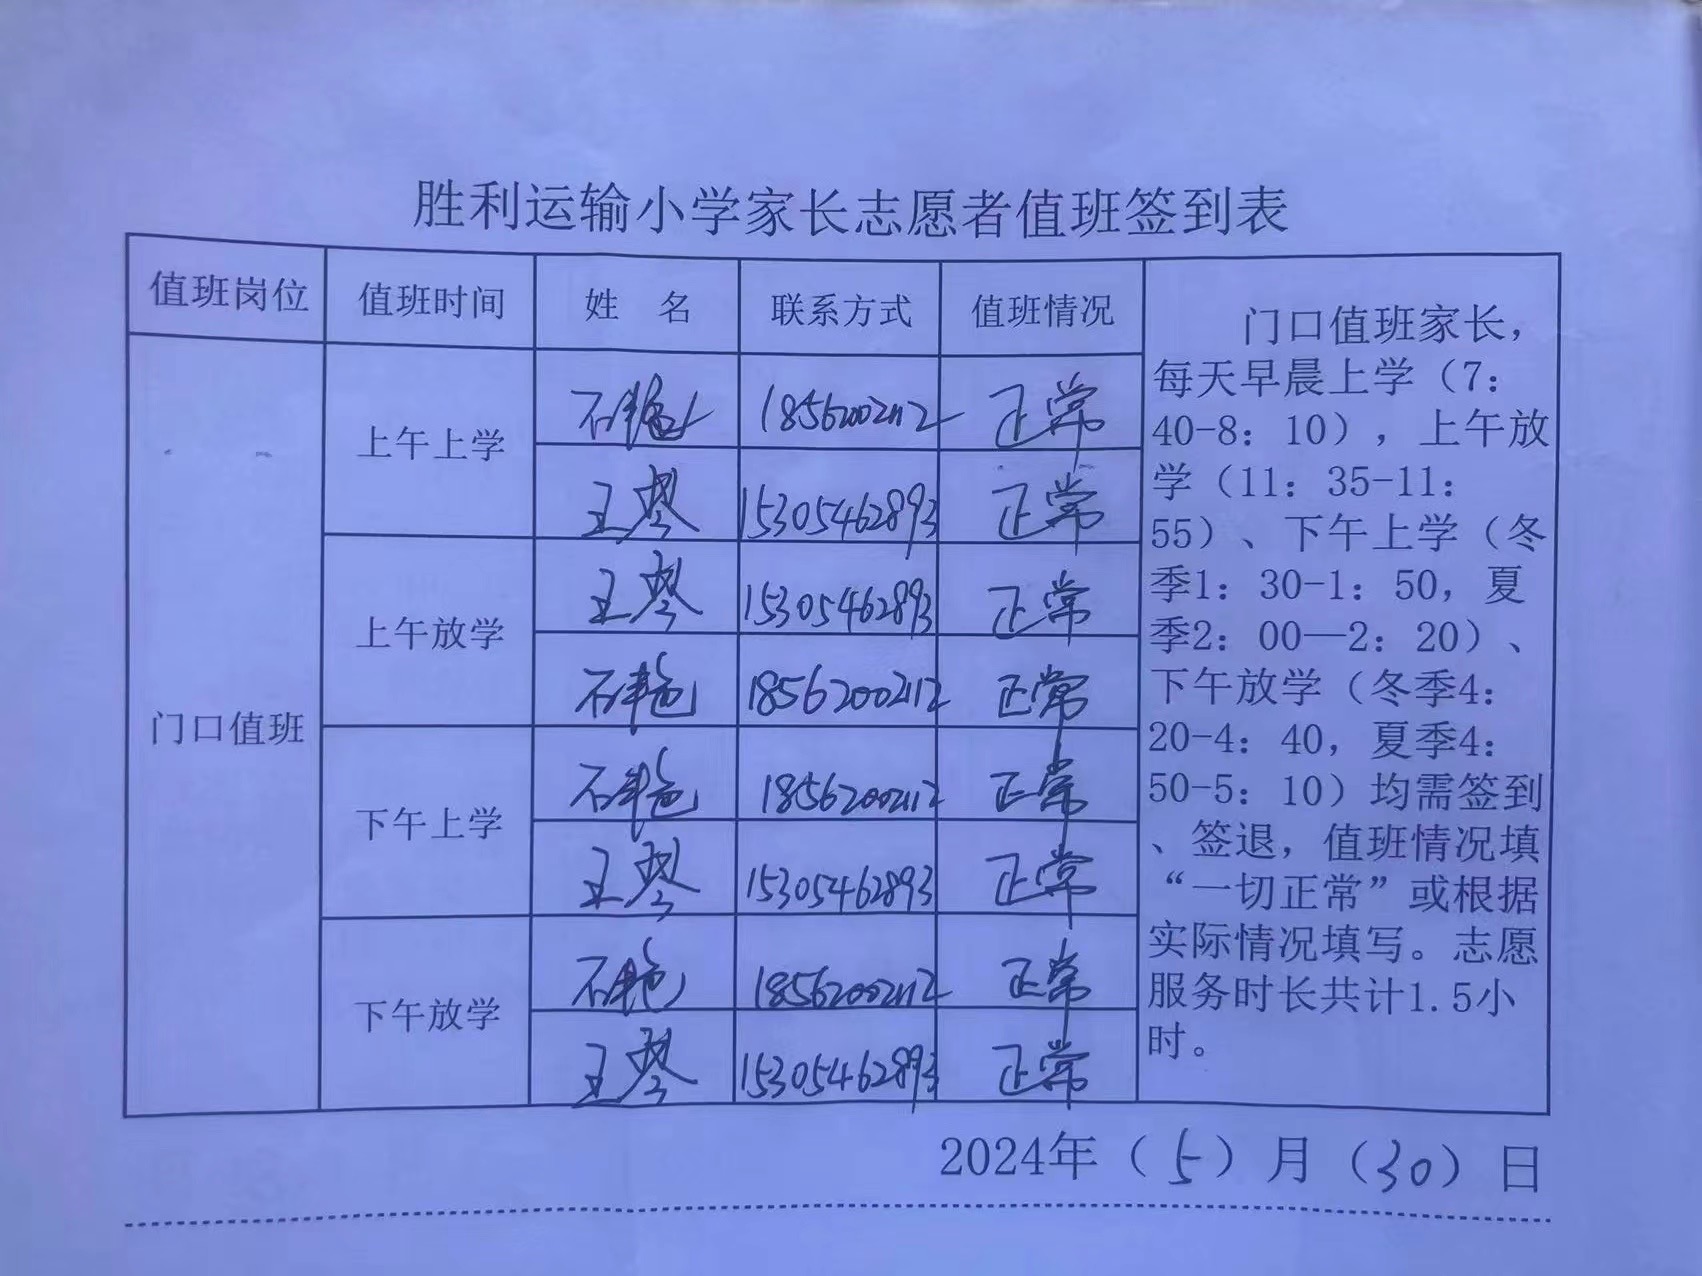 胜利运输小学家长志愿者值班签到表
值班岗位 值班时间 姓 名 联系方式 值班情况
门口值班
上午上学 石艳 18562002112 正常
王琴 15305462893 正常
上午放学 王琴 15305462893 正常
石艳 18562002112 正常
下午上学 石艳 18562002112 正常
王琴 15305462893 正常
下午放学 石艳 18562002112 正常
王琴 15305462893 正常
门口值班家长，
每天早晨上学（7：
40-8：10），上午放
学（11：35-11：
55）、下午上学（冬
季1：30-1：50，夏
季2：00—2：20）、
下午放学（冬季4：
20-4：40，夏季4：
50-5：10）均需签到
、签退，值班情况填
“一切正常”或根据
实际情况填写。志愿
服务时长共计1.5小
时。
2024年（5）月（30）日